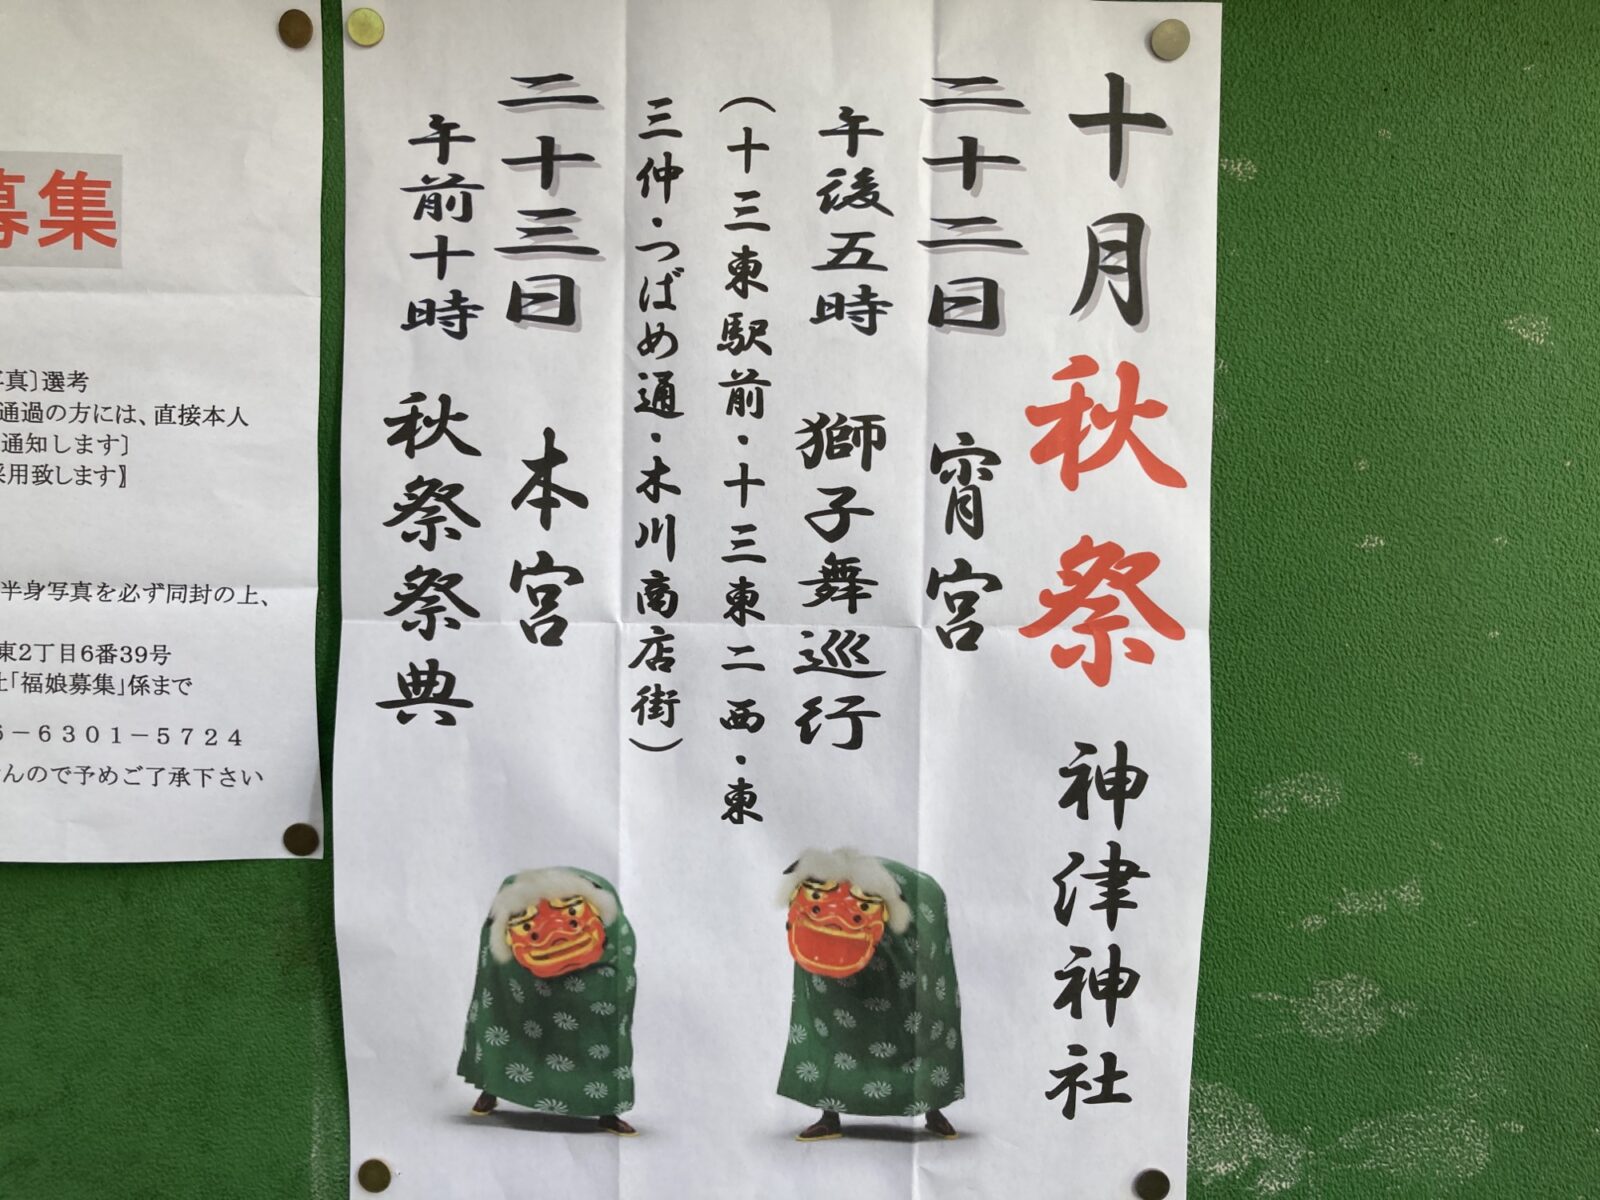 十月 秋祭 神津神社
二十二日 宵宮
午後五時 獅子舞巡行
(十三東駅前・十三東二西・東
三仲・つばめ通・木川商店街)
二十三日 本宮
午前十時 秋祭祭典
募集
写真〕選考
通過の方には、直接本人
通知します〕
採用致します〗
半身写真を必ず同封の上、
東2丁目6番39号
社「福娘募集」係まで
6－6301－5724
んので予めご了承下さい